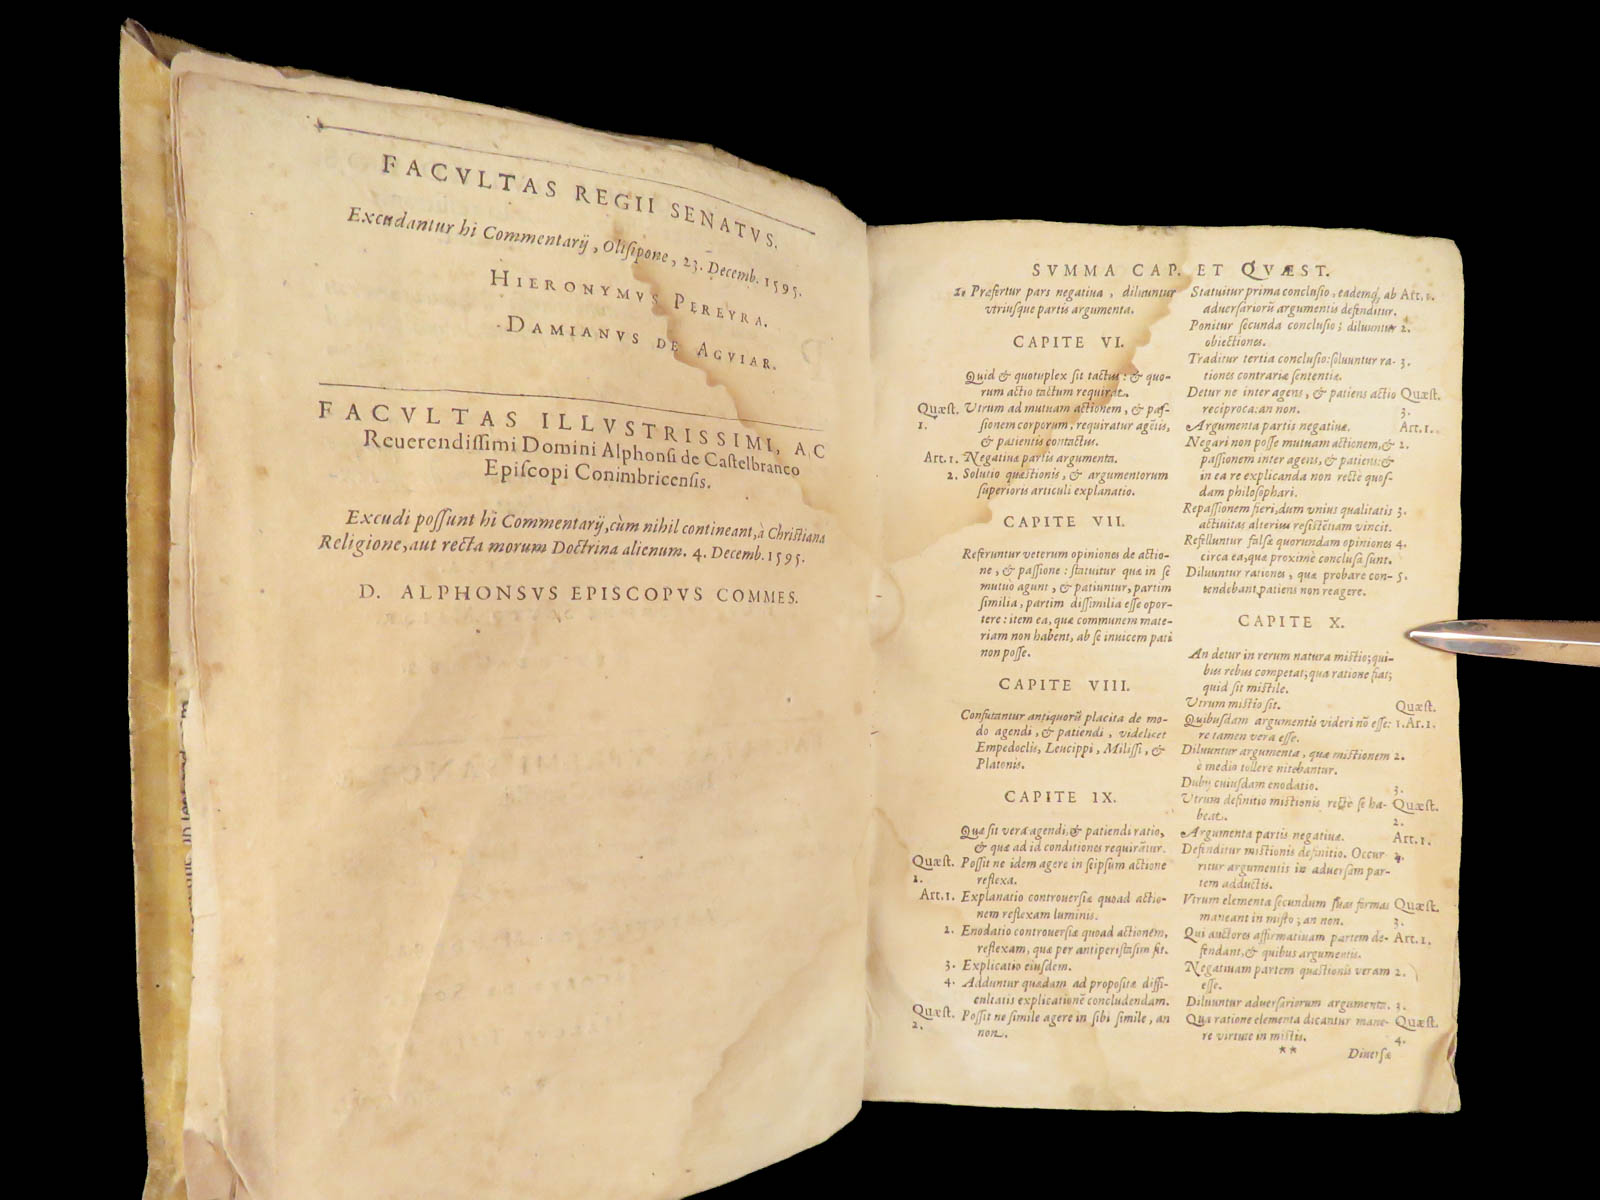 FACVLTAS REGII SENATVS.
Excudantur hi Commentarij, Olisipone, 23. Decemb. 1595.
HIERONYMVS PEREYRA.
DAMIANVS DE AGVIAR.
FACVLTAS ILLVSTRISSIMI, AC
Reuerendissimi Domini Alphonsi de Castelbranco
Episcopi Conimbricensis.
Excudi possunt hi Commentarij, cùm nihil contineant, à Christiana
Religione, aut recta morum Doctrina alienum. 4. Decemb. 1595.
D. ALPHONSVS EPISCOPVS COMMES.
SVMMA CAP. ET QVÆST.
2. Præfertur pars negatiua, diluuntur
vtriusque partis argumenta.
CAPITE VI.
Quid & quotuplex sit tactus: & quo-
rum actio tactum requirat.
Quæst. Vtrum ad mutuam actionem, & pas-
1. sionem corporum, requiratur agẽtis,
& patientis contactus.
Art. 1. Negatiuæ partis argumenta.
2. Solutio quæstionis, & argumentorum
superioris articuli explanatio.
CAPITE VII.
Referuntur veterum opiniones de actio-
ne, & passione: statuitur quæ in se
mutuò agunt, & patiuntur, partim
similia, partim dissimilia esse opor-
tere: item ea, quæ communem mate-
riam non habent, ab se inuicem pati
non posse.
CAPITE VIII.
Confutantur antiquorũ placita de mo-
do agendi, & patiendi, videlicet
Empedoclis, Leucippi, Milissi, &
Platonis.
CAPITE IX.
Quæ sit vera agendi, & patiendi ratio,
& quæ ad id conditiones requirãtur.
Quæst. Possit ne idem agere in seipsum actione
1. reflexa.
Art. 1. Explanatio controuersiæ quoad actio-
nem reflexam luminis.
2. Enodatio controuersiæ quoad actionem,
reflexam, quæ per antiperistasim fit.
3. Explicatio eiusdem.
4. Adduntur quædam ad propositæ diffi-
cultatis explicationẽ concludendam.
Quæst. Possit ne simile agere in sibi simile, an
2. non.
Statuitur prima conclusio, eademq́; ab Art. 2.
aduersariorũ argumentis defenditur.
Ponitur secunda conclusio; diluuntur 2.
obiectiones.
Traditur tertia conclusio: soluuntur ra- 3.
tiones contrariæ sententiæ.
Detur ne inter agens, & patiens actio Quæst.
reciproca: an non. 3.
Argumenta partis negatiuæ. Art. 1.
Negari non posse mutuam actionem, & 2.
passionem inter agens, & patiens: &
in ea re explicanda non rectè quos-
dam philosophari.
Repassionem fieri, dum vnius qualitatis 3.
actiuitas alterius resistẽtiam vincit.
Refelluntur falsæ quorundam opiniones 4.
circa ea, quæ proximè conclusa sunt.
Diluuntur rationes, quæ probare con- 5.
tendebant, patiens non reagere.
CAPITE X.
An detur in rerum natura mistio; qui-
bus rebus competat; qua ratione fiat;
quid sit mistile.
Vtrum mistio sit. Quæst.
Quibusdam argumentis videri nõ esse: 1. Ar. 1.
re tamen vera esse.
Diluuntur argumenta, quæ mistionem 2.
è medio tollere nitebantur.
Dubij cuiusdam enodatio. 3.
Vtrum definitio mistionis rectè se ha- Quæst.
beat. 2.
Argumenta partis negatiuæ. Art. 1.
Defenditur mistionis definitio. Occur 2.
ritur argumentis in aduersam par-
tem adductis.
Vtrum elementa secundum suas formas Quæst.
maneant in misto; an non. 3.
Qui auctores affirmatiuam partem de- Art. 1.
fendant, & quibus argumentis.
Negatiuam partem quæstionis veram 2.
esse.
Diluuntur aduersariorum argumenta. 3.
Qua ratione elementa dicantur mane- Quæst.
re virtute in mistis. 4.
** Diuersæ